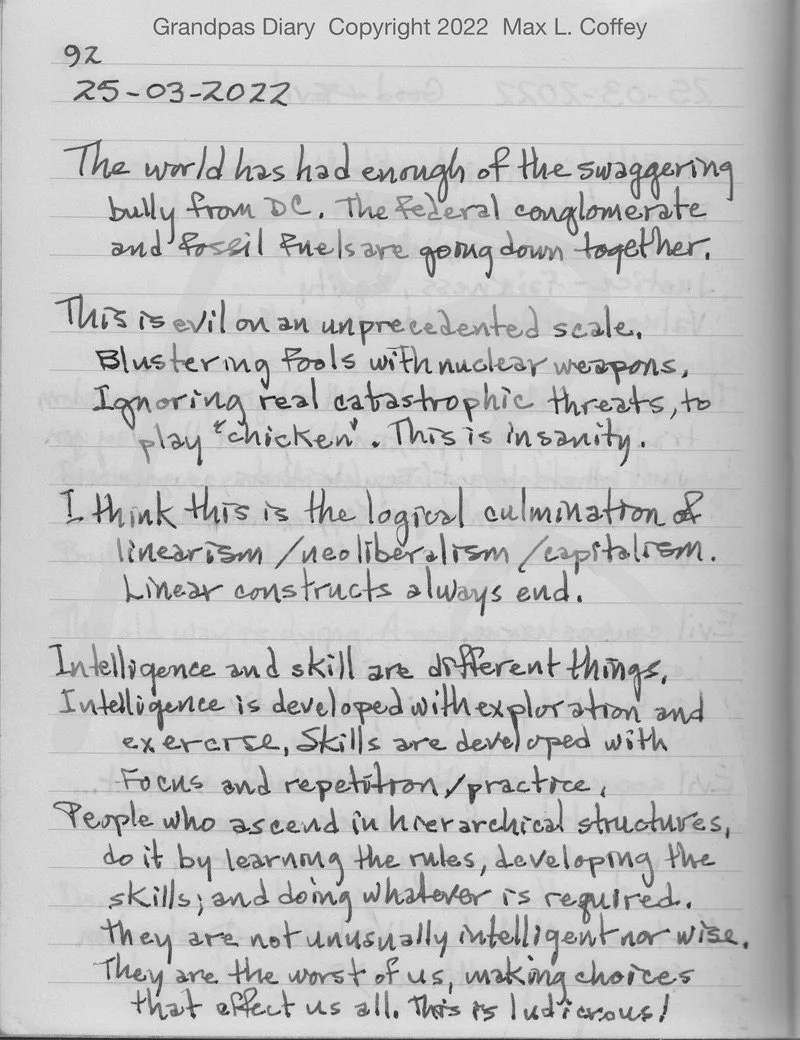 Grandpas Diary Copyright 2022 Max L. Coffey
92
25-03-2022
The world has had enough of the swaggering
bully from DC. The Federal conglomerate
and fossil fuels are going down together.
This is evil on an unprecedented scale.
Blustering fools with nuclear weapons,
Ignoring real catastrophic threats, to
play "chicken". This is insanity.
I think this is the logical culmination of
linearism/neoliberalism/capitalism.
Linear constructs always end.
Intelligence and skill are different things,
Intelligence is developed with exploration and
exercise, Skills are developed with
Focus and repetition/practice,
People who ascend in hierarchical structures,
do it by learning the rules, developing the
skills; and doing whatever is required.
They are not unusually intelligent nor wise.
They are the worst of us, making choices
that effect us all. This is ludicrous!